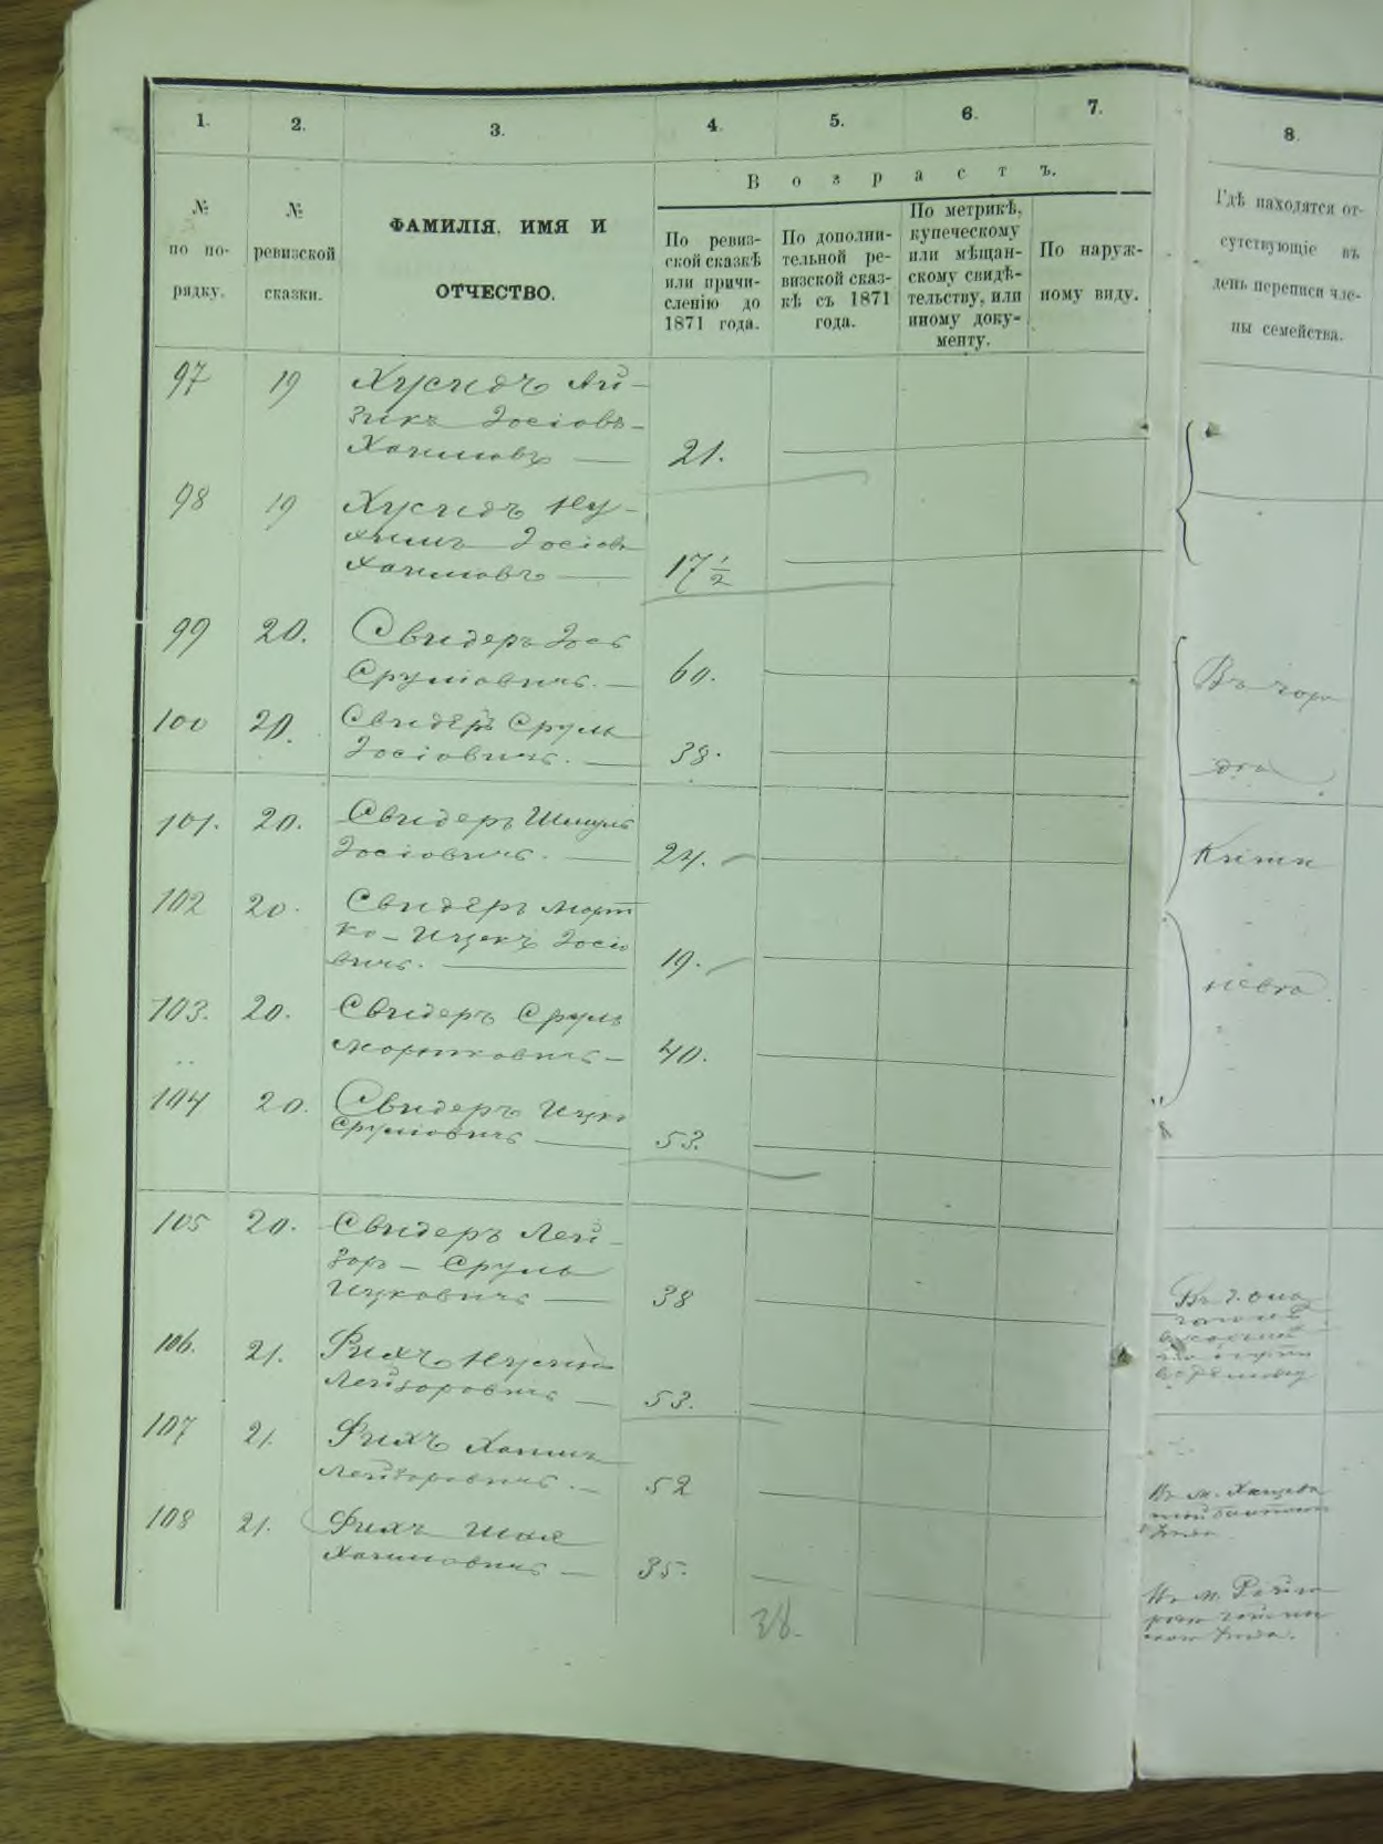 1. 2. 3. 4. 5. 6. 7. 8.
Возрастъ.
№ по порядку.
№ ревизской сказки.
ФАМИЛІЯ, ИМЯ И
ОТЧЕСТВО.
По ревиз-
ской сказкѣ
или причи-
сленію до
1871 года.
По дополни-
тельной ре-
визской сказ-
кѣ съ 1871
года.
По метрикѣ,
купеческому
или мѣщан-
скому свидѣ-
тельству, или
иному доку-
менту.
По наруж-
ному виду.
Гдѣ находятся от-
сутствующіе въ
день переписи чле-
ны семейства.
97 19 Хусидъ Ай-
зикъ Іосіовъ-
Хаимовъ — 21.
98 19 Хусидъ Ну-
химъ Іосіовъ
Хаимовъ — 17 1/2
99 20. Свидеръ Іось
Сруліовичъ. — 60.
Въ горо
100 20. Свидеръ Сруль
Іосіовичъ. — 38.
дѣ
101. 20. Свидеръ Шмуль
Іосіовичъ. — 24.
Киши
102 20. Свидеръ Морт
ко-Ицекъ Іосіо
вичъ. — 19.
невѣ.
103. 20. Свидеръ Сруль
Мортковичъ — 40.
104 20. Свидеръ Ицко
Сруліовичъ — 53.
105 20. Свидеръ Лей-
зоръ — Сруль
Ицковичъ — 38
106. 21. Фихъ Нусинъ
Лейзоровичъ — 53.
107 21. Фихъ Хаимъ
Лейзоровичъ. — 52
Въ м. Хащева
108 21. Фихъ Шая
Хаимовичъ — 35.
38.